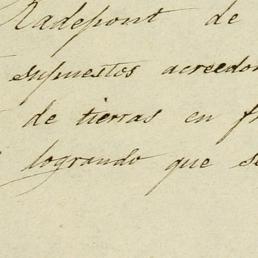 Radepont de
supuestos acreedor
de tierras en f
logrando que s